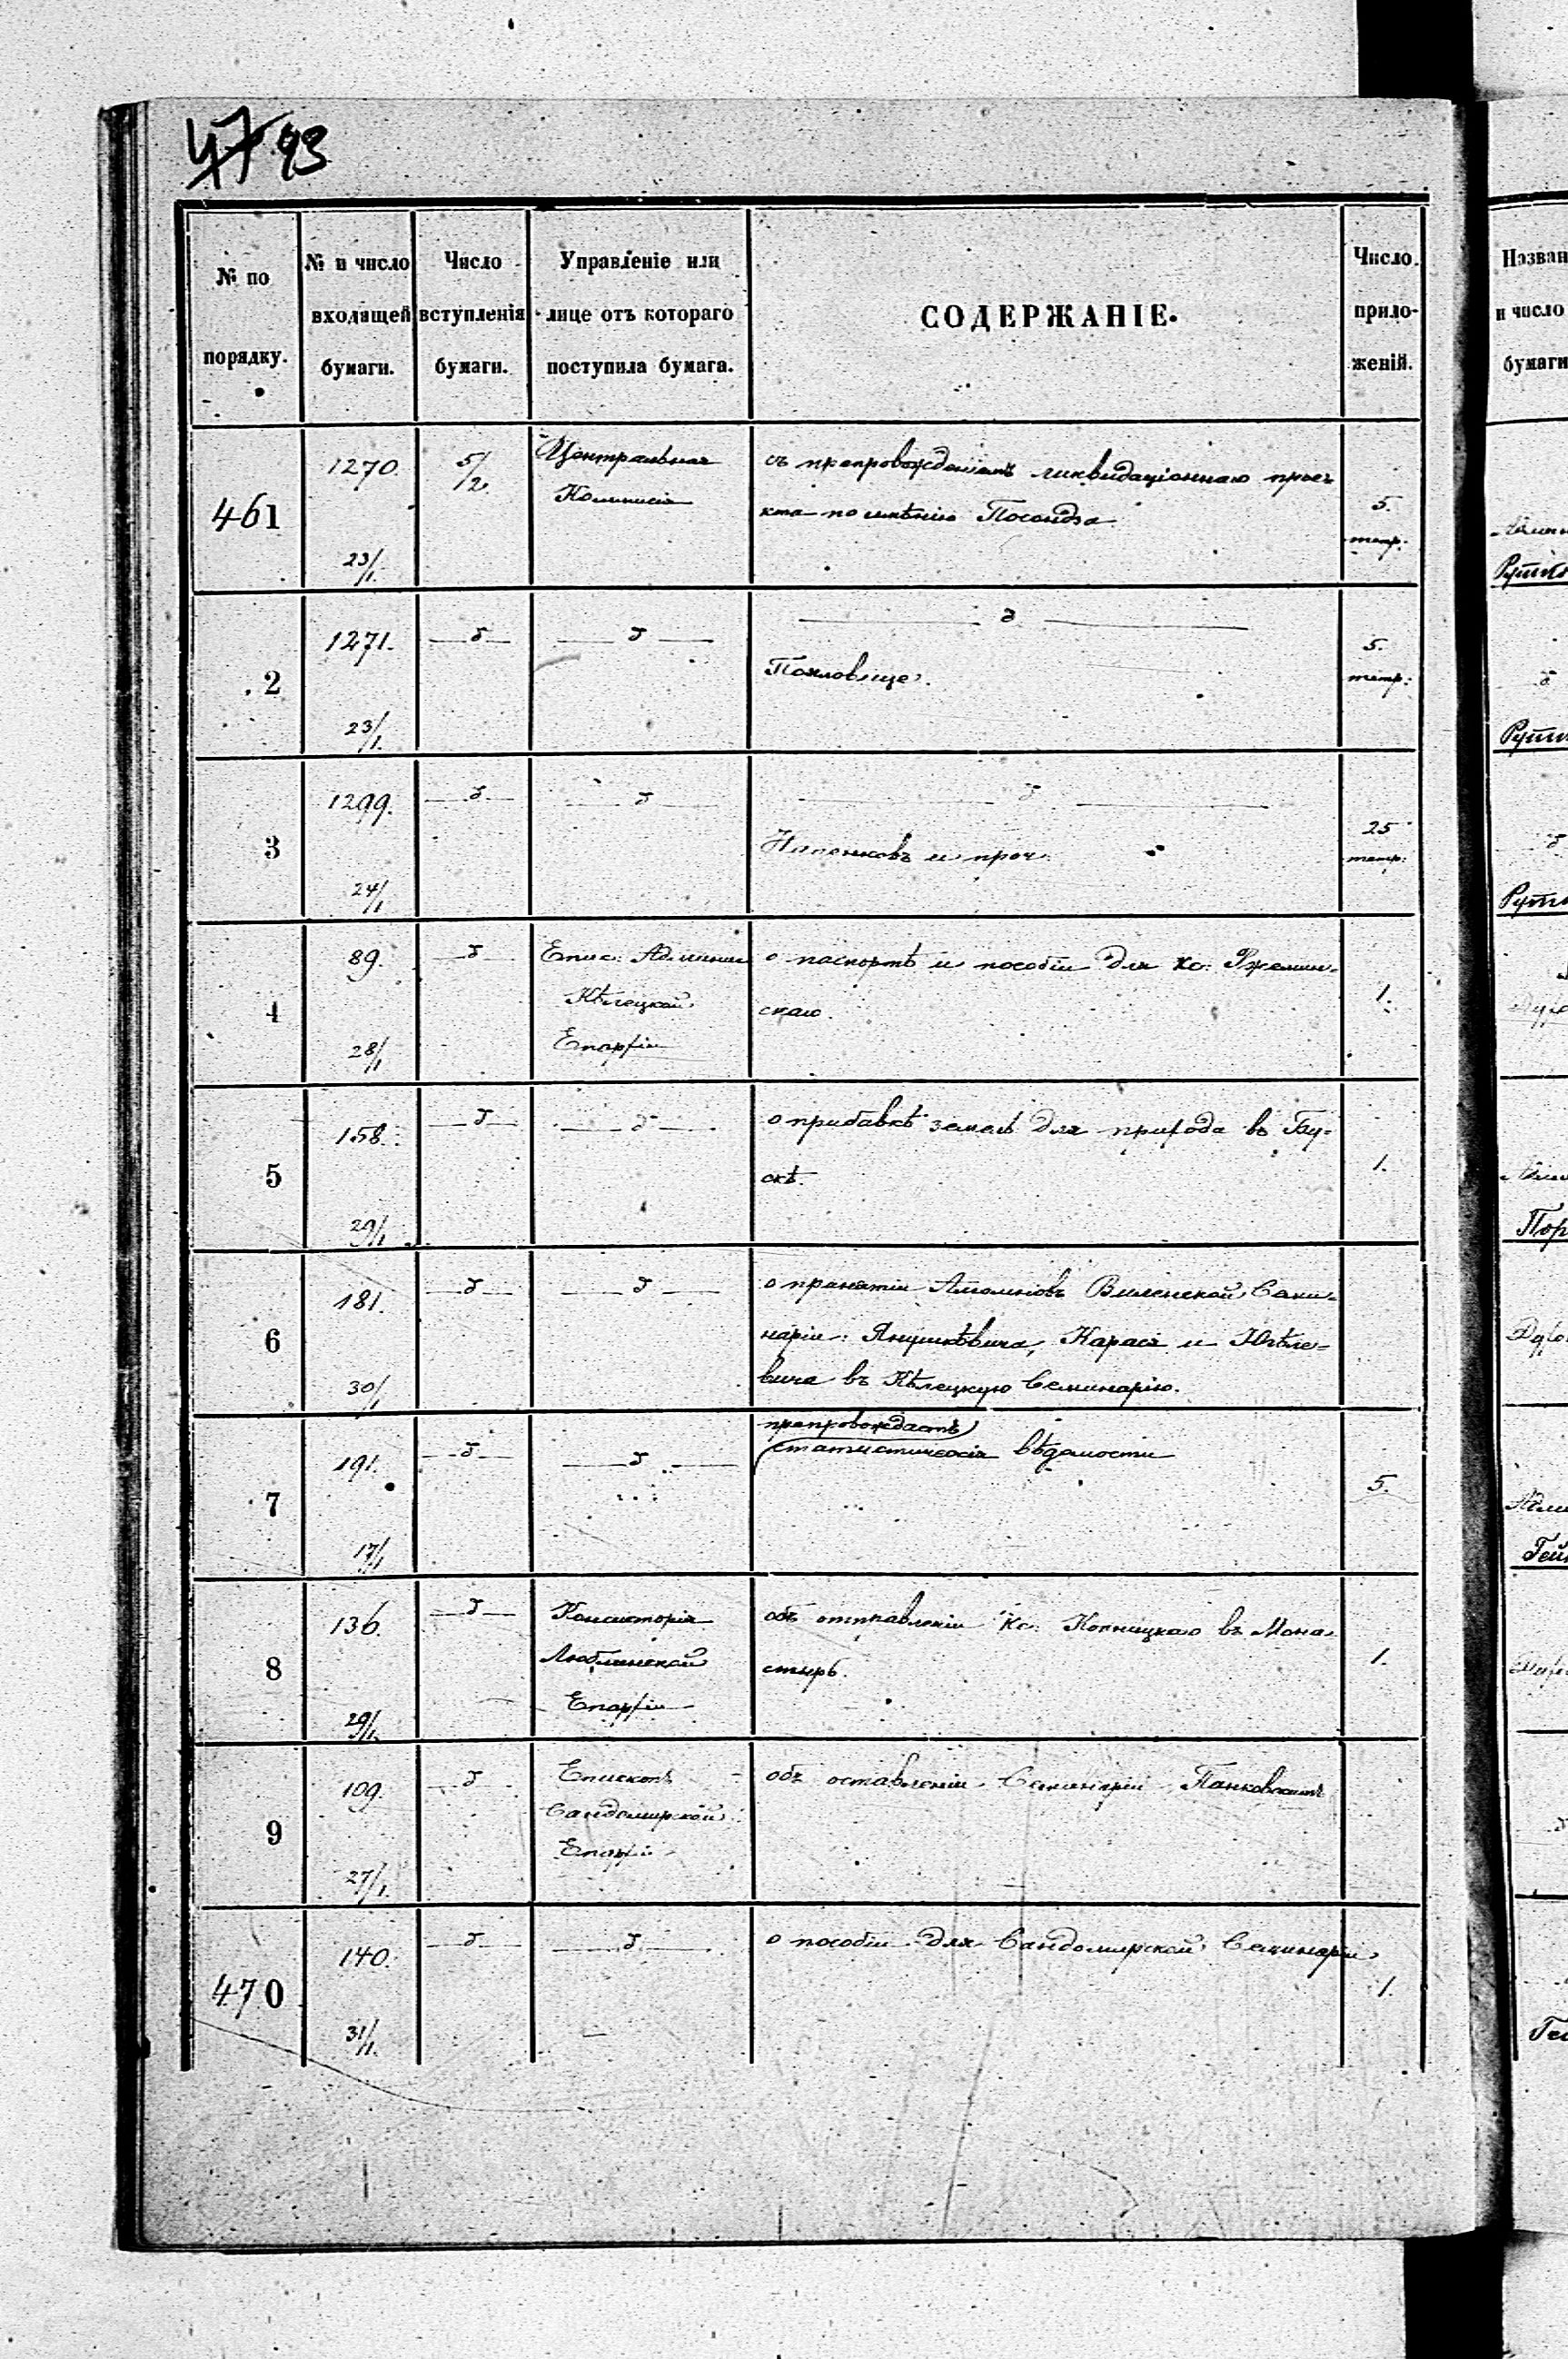 47 93
№ по
порядку.
№ и число
входящей
бумаги.
Число
вступленія
бумаги.
Управленіе или
лице отъ котораго
поступила бумага.
СОДЕРЖАНІЕ.
Число
прило-
женій.
461
1270.
23/1.
5/2.
Центральная
Коммисія
съ препровожденіемъ ликвидаціоннаго прое-
кта по имѣнію
5.
тетр.
2
1271.
23/1.
— д —
— д —
— д —
5.
тетр.
3
1299.
24/1
— д —
— д —
— д —
и проч.
25
тетр.
4
89.
28/1
— д —
Епис. Админис
Кѣлецкой
Епархіи
о паспортѣ и пособіи для Кс.
скаго.
1.
5
158.
29/1
— д —
— д —
о прибавкѣ земель для прихода въ Бу-
скѣ.
1.
6
181.
30/1
— д —
— д —
о принятіи Виленской Семи-
наріи: Янушкѣвича, Карася и
вича въ Кѣлецкую Семинарію.
7
191.
17/1
— д —
— д —
препровождаетъ
статистическія вѣдомости
5.
8
136.
29/1.
— д —
Консисторія
Люблинской
Епархіи
объ отправленіи Кс. Копницкаго въ Мона-
стырь.
1.
9
109.
27/1.
— д
Епископъ
Сандомирской
Епархіи
объ оставленіи Семинаріи Панковскимъ
470
140.
31/1.
— д —
— д —
о пособіи для Сандомирской Семинаріи
1.
Назван
и число
бумаги